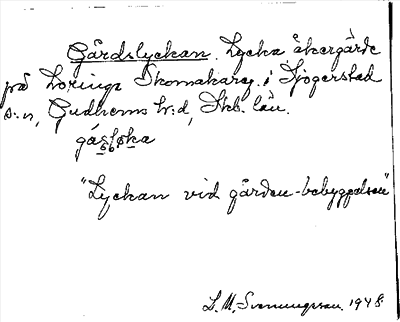 Gårdslyckan. Lycka åkergärde
på Lovings Skomakareg. i Sjogerstad
s:n, Gudhems h:d, Skb. län.
gásløka
"Lyckan vid gården-bebyggelsen"
L. M. Svenungsson. 1948